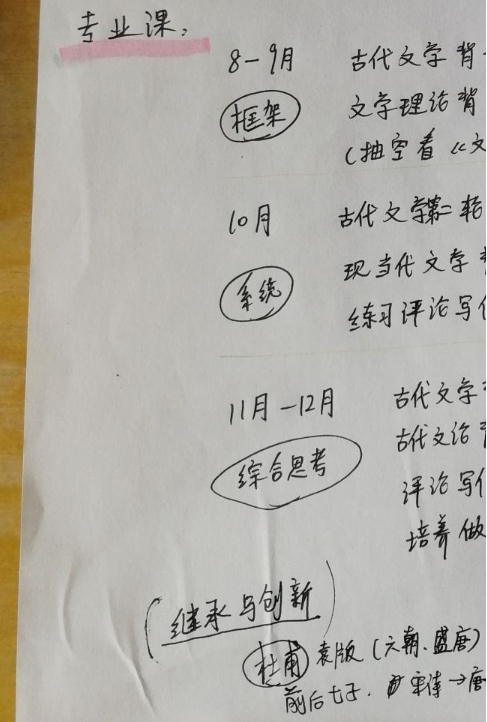 专业课:
8-9月 古代文学 背
框架 文学理论 背
(抽空看《文
10月 古代文学第二轮
系统 现当代文学
练习评论写作
11月-12月 古代文学
综合思考 古代文论
评论写作
培养做
(继承与创新)
杜甫 袁版(六朝、盛唐)
前后七子.